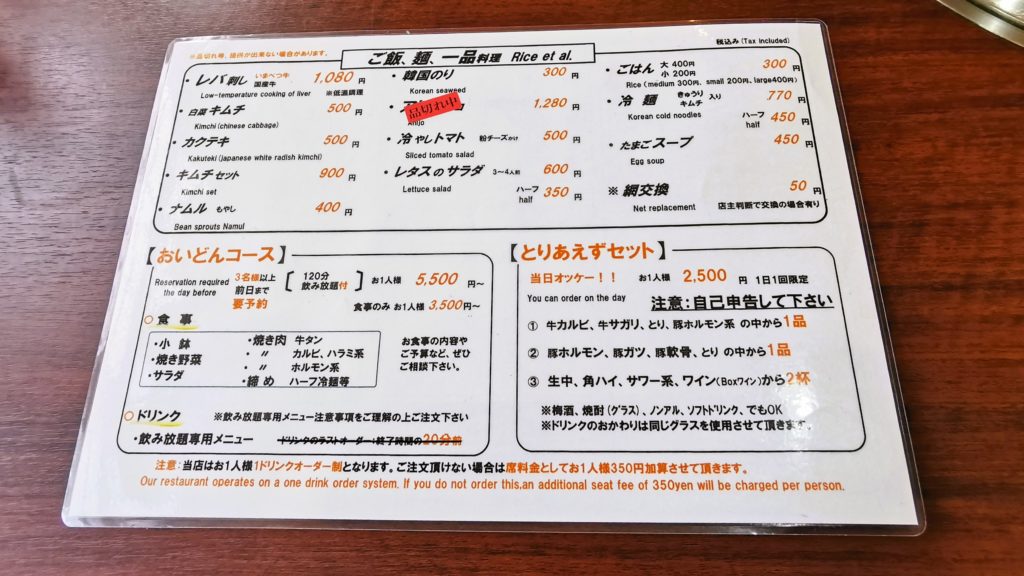 ※品切れ時、提供が出来ない場合があります。
ご飯、麺、一品料理 Rice et al.
税込み(Tax included)
・レバ刺し いまべつ牛 国産牛 1,080円
Low-temperature cooking of liver ※低温調理
・白菜キムチ 500円
Kimchi(chinese cabbage)
・カクテキ 500円
Kakuteki(japanese white radish kimchi)
・キムチセット 900円
Kimchi set
・ナムル もやし 400円
Bean sprouts Namul
・韓国のり 300円
Korean seaweed
品切れ中 1,280円
・冷やしトマト 粉チーズかけ 500円
Sliced tomato salad
・レタスのサラダ 3～4人前 600円
Lettuce salad ハーフ half 350円
・ごはん 大 400円 小 200円 300円
Rice(medium 300円, small 200円, large400円)
・冷麺 きゅうり キムチ 入り 770円
Korean cold noodles ハーフ half 450円
・たまごスープ 450円
Egg soup
※網交換 50円
Net replacement 店主判断で交換の場合有り
【おいどんコース】
Reservation required the day before
3名様以上 前日まで 要予約
120分 飲み放題付 お1人様 5,500円～
食事のみ お1人様 3,500円～
○食事
・小鉢
・焼き野菜
・サラダ
・焼き肉 牛タン
・ 〃 カルビ、ハラミ系
・ 〃 ホルモン系
・締め ハーフ冷麺等
お食事の内容や
ご予算など、ぜひ
ご相談下さい。
○ドリンク ※飲み放題専用メニュー注意事項をご理解の上ご注文下さい
・飲み放題専用メニュー ドリンクのラストオーダー:終了時間の20分前
【とりあえずセット】
当日オッケー！！ お1人様 2,500円 1日1回限定
You can order on the day 注意：自己申告して下さい
① 牛カルビ、牛サガリ、とり、豚ホルモン系 の中から1品
② 豚ホルモン、豚ガツ、豚軟骨、とり の中から1品
③ 生中、角ハイ、サワー系、ワイン(Boxワイン)から2杯
※梅酒、焼酎(グラス)、ノンアル、ソフトドリンク、でもOK
※ドリンクのおかわりは同じグラスを使用させて頂きます。
注意：当店はお1人様1ドリンクオーダー制となります。ご注文頂けない場合は席料金としてお1人様350円加算させて頂きます。
Our restaurant operates on a one drink order system. If you do not order this,an additional seat fee of 350yen will be charged per person.